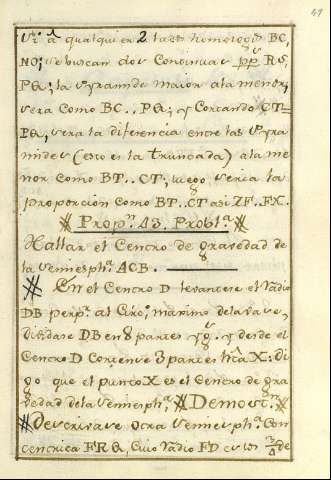 41
qualquiera 2 lados homologos BC,
NO; se buscan dos continuas pp.s RS,
PQ; la Pyramide maior a la menor,
sera como BC.. PQ; y Cortando CT=
PQ, sera la diferencia entre las Pyra
mides (esto es la truncada) a la me
nor como BT.. CT; luego seria la
proporcion como BT.. CT asi ZF.. FX.
Prop.n 43. Probl.a
Hallar el Centro de gravedad de
la semesph.a ACB.
En el Centro D levantese el radio
DB perp.r al Circ.o maximo de la vase,
dividase DB en 8 partes y.s y desde el
Centro D Cortense 3 partes h.ta X: di
go que el punto X es el Centro de gra
vedad de la semesph.a Demost.n
Descrivase otra semesph.a Con
centrica FRQ, cuio radio FD es los 3/4 de